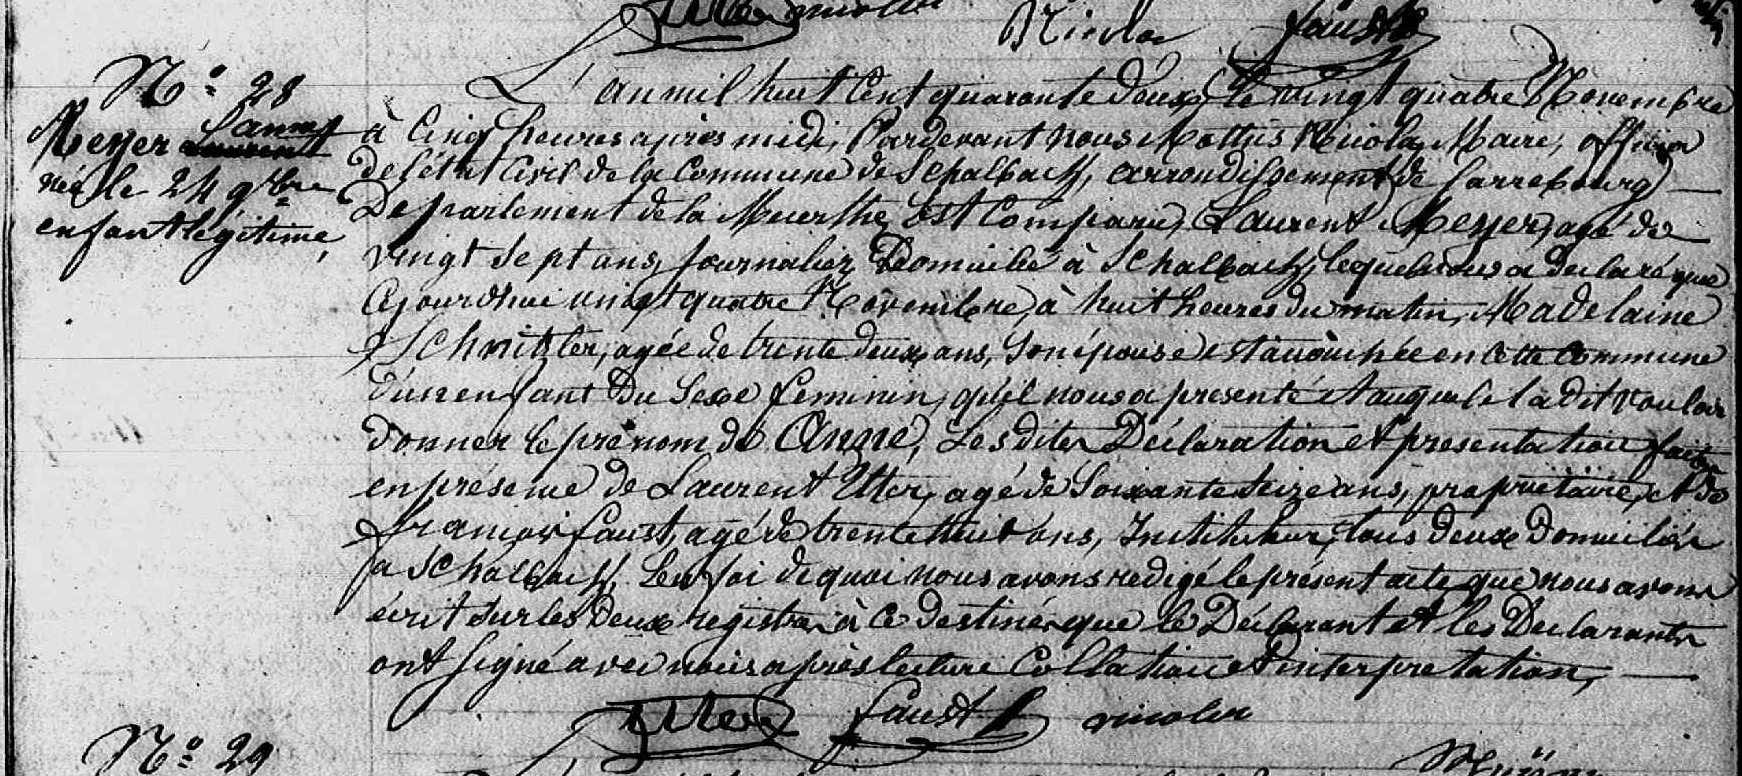 Nicolas faust
N.° 28
Meyer Laurent
Anne
née le 24 9bre
enfant légitime,
L'an mil huit Cent quarante deux, le vingt quatre Novembre
à Cinq heures après midi, Pardevant nous Mattis Nicolas Maire, officier
de l'état Civil de la Commune de Schalbach, arrondissement de Sarrebourg
Departement de la Meurthe, Est Comparu Laurent Meyer, agé de
vingt Sept ans, Journalier, Domicilié à Schalbach, lequel nous a declaré que
Cejourdhui vingt quatre Novembre, à huit heures du matin, Madelaine
Schnitzler, agée de trente deux ans, Son épouse est accouchée en cette Commune
d'un enfant Du Sexe feminin, qu'il nous a presenté et auquel il a dit vouloir
donner le prénom de Anne, Les dites Déclaration et presentation faites
en présence de Laurent Utter, agé de Soixante Seize ans, propriétaire, et de
françois faust, agé de trente huit ans, Instituteur, tous deux Domiciliés
a Schalbach, En foi de quoi nous avons redigé le présent acte que nous avons
écrit Sur les Deux registres à Ce destinés que le Déclarant et les Declarants
ont Signé avec nous après lecture Collation et interpretation,
faust
N.° 29